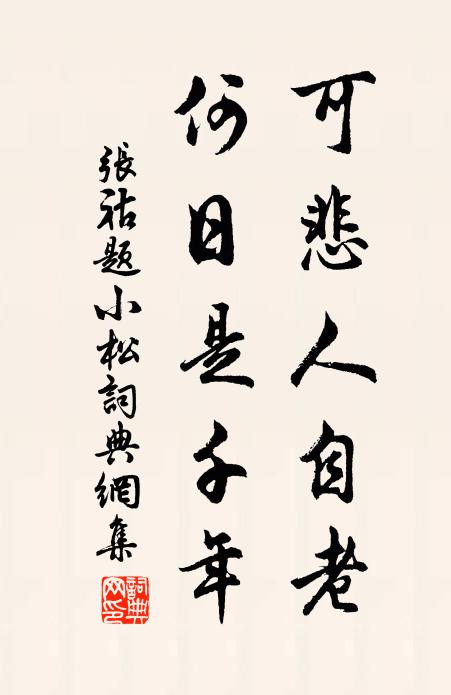 可悲人自老
何日是千年
張祜題小松詞典網集
詞典网印